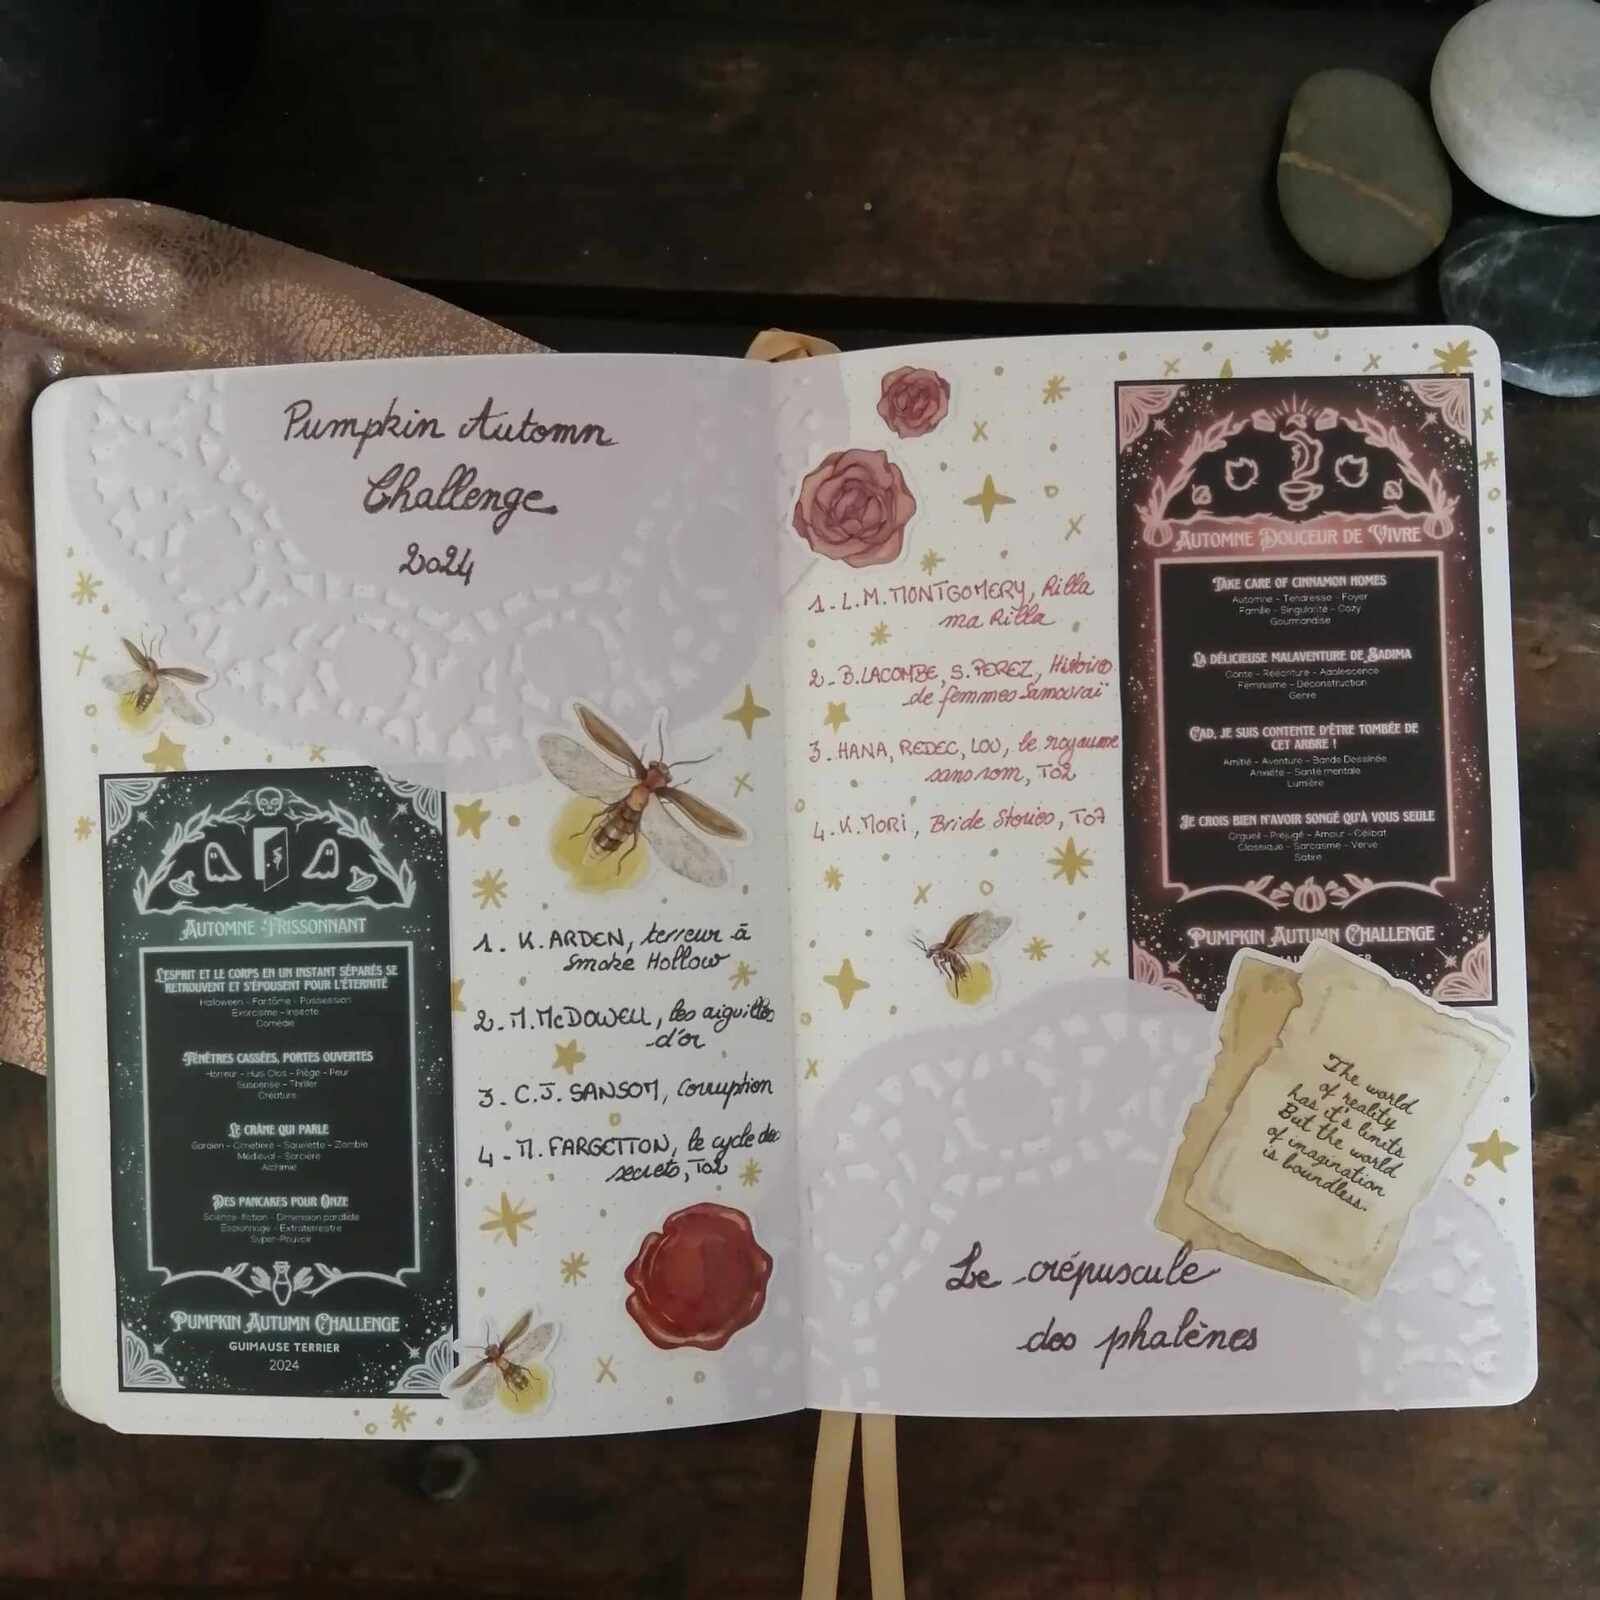 Pumpkin Automn
Challenge
2024
AUTOMNE FRISSONNANT
L'ESPRIT ET LE CORPS EN UN INSTANT SÉPARÉS SE
RETROUVENT ET S'ÉPOUSENT POUR L'ÉTERNITÉ
Halloween - Fantôme - Possession
Exorcisme - Insecte
Comédie
FENÊTRES CASSÉES, PORTES OUVERTES
Horreur - Huis Clos - Piège - Peur
Suspense - Thriller
Créature
LE CRÂNE QUI PARLE
Gardien - Cimetière - Squelette - Zombie
Médiéval - Sorcière
Alchimie
DES PANCAKES POUR ONZE
Science-fiction - Dimension parallèle
Espionnage - Extraterrestre
Super-Pouvoir
PUMPKIN AUTUMN CHALLENGE
GUIMAUSE TERRIER
2024
1. K. ARDEN, terreur à
Smoke Hollow
2. M. McDOWELL, les aiguilles
d'or
3. C.J. SANSOM, corruption
4. M. FARGETTON, le cycle des
secrets, T02
1. L.M. MONTGOMERY, Rilla
ma Rilla
2. B. LACOMBE, S. PEREZ, Histoires
de femmes Samouraï
3. HANA, REDEC, LOU, le royaume
sans nom, T02
4. K. MORI, Bride Stories, T07
AUTOMNE DOUCEUR DE VIVRE
TAKE CARE OF CINNAMON HOMES
Automne - Tendresse - Foyer
Famille - Singularité - Cozy
Gourmandise
LA DÉLICIEUSE MALAVENTURE DE SADIMA
Conte - Réécriture - Adolescence
Féminisme - Déconstruction
Genre
CAD, JE SUIS CONTENTE D'ÊTRE TOMBÉE DE
CET ARBRE !
Amitié - Aventure - Bande Dessinée
Anxiété - Santé mentale
Lumière
JE CROIS BIEN N'AVOIR SONGÉ QU'À VOUS SEULE
Orgueil - Préjugé - Amour - Célibat
Classique - Sarcasme - Verve
Satire
PUMPKIN AUTUMN CHALLENGE
The world
of reality
has it's limits
But the world
of imagination
is boundless.
Le crépuscule
des phalènes